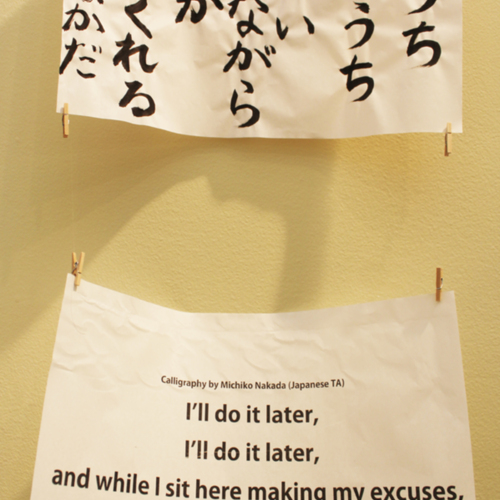 うち
うち
い
ながら
が
くれる
かだ
Calligraphy by Michiko Nakada (Japanese TA)
I'll do it later,
I'll do it later,
and while I sit here making my excuses,